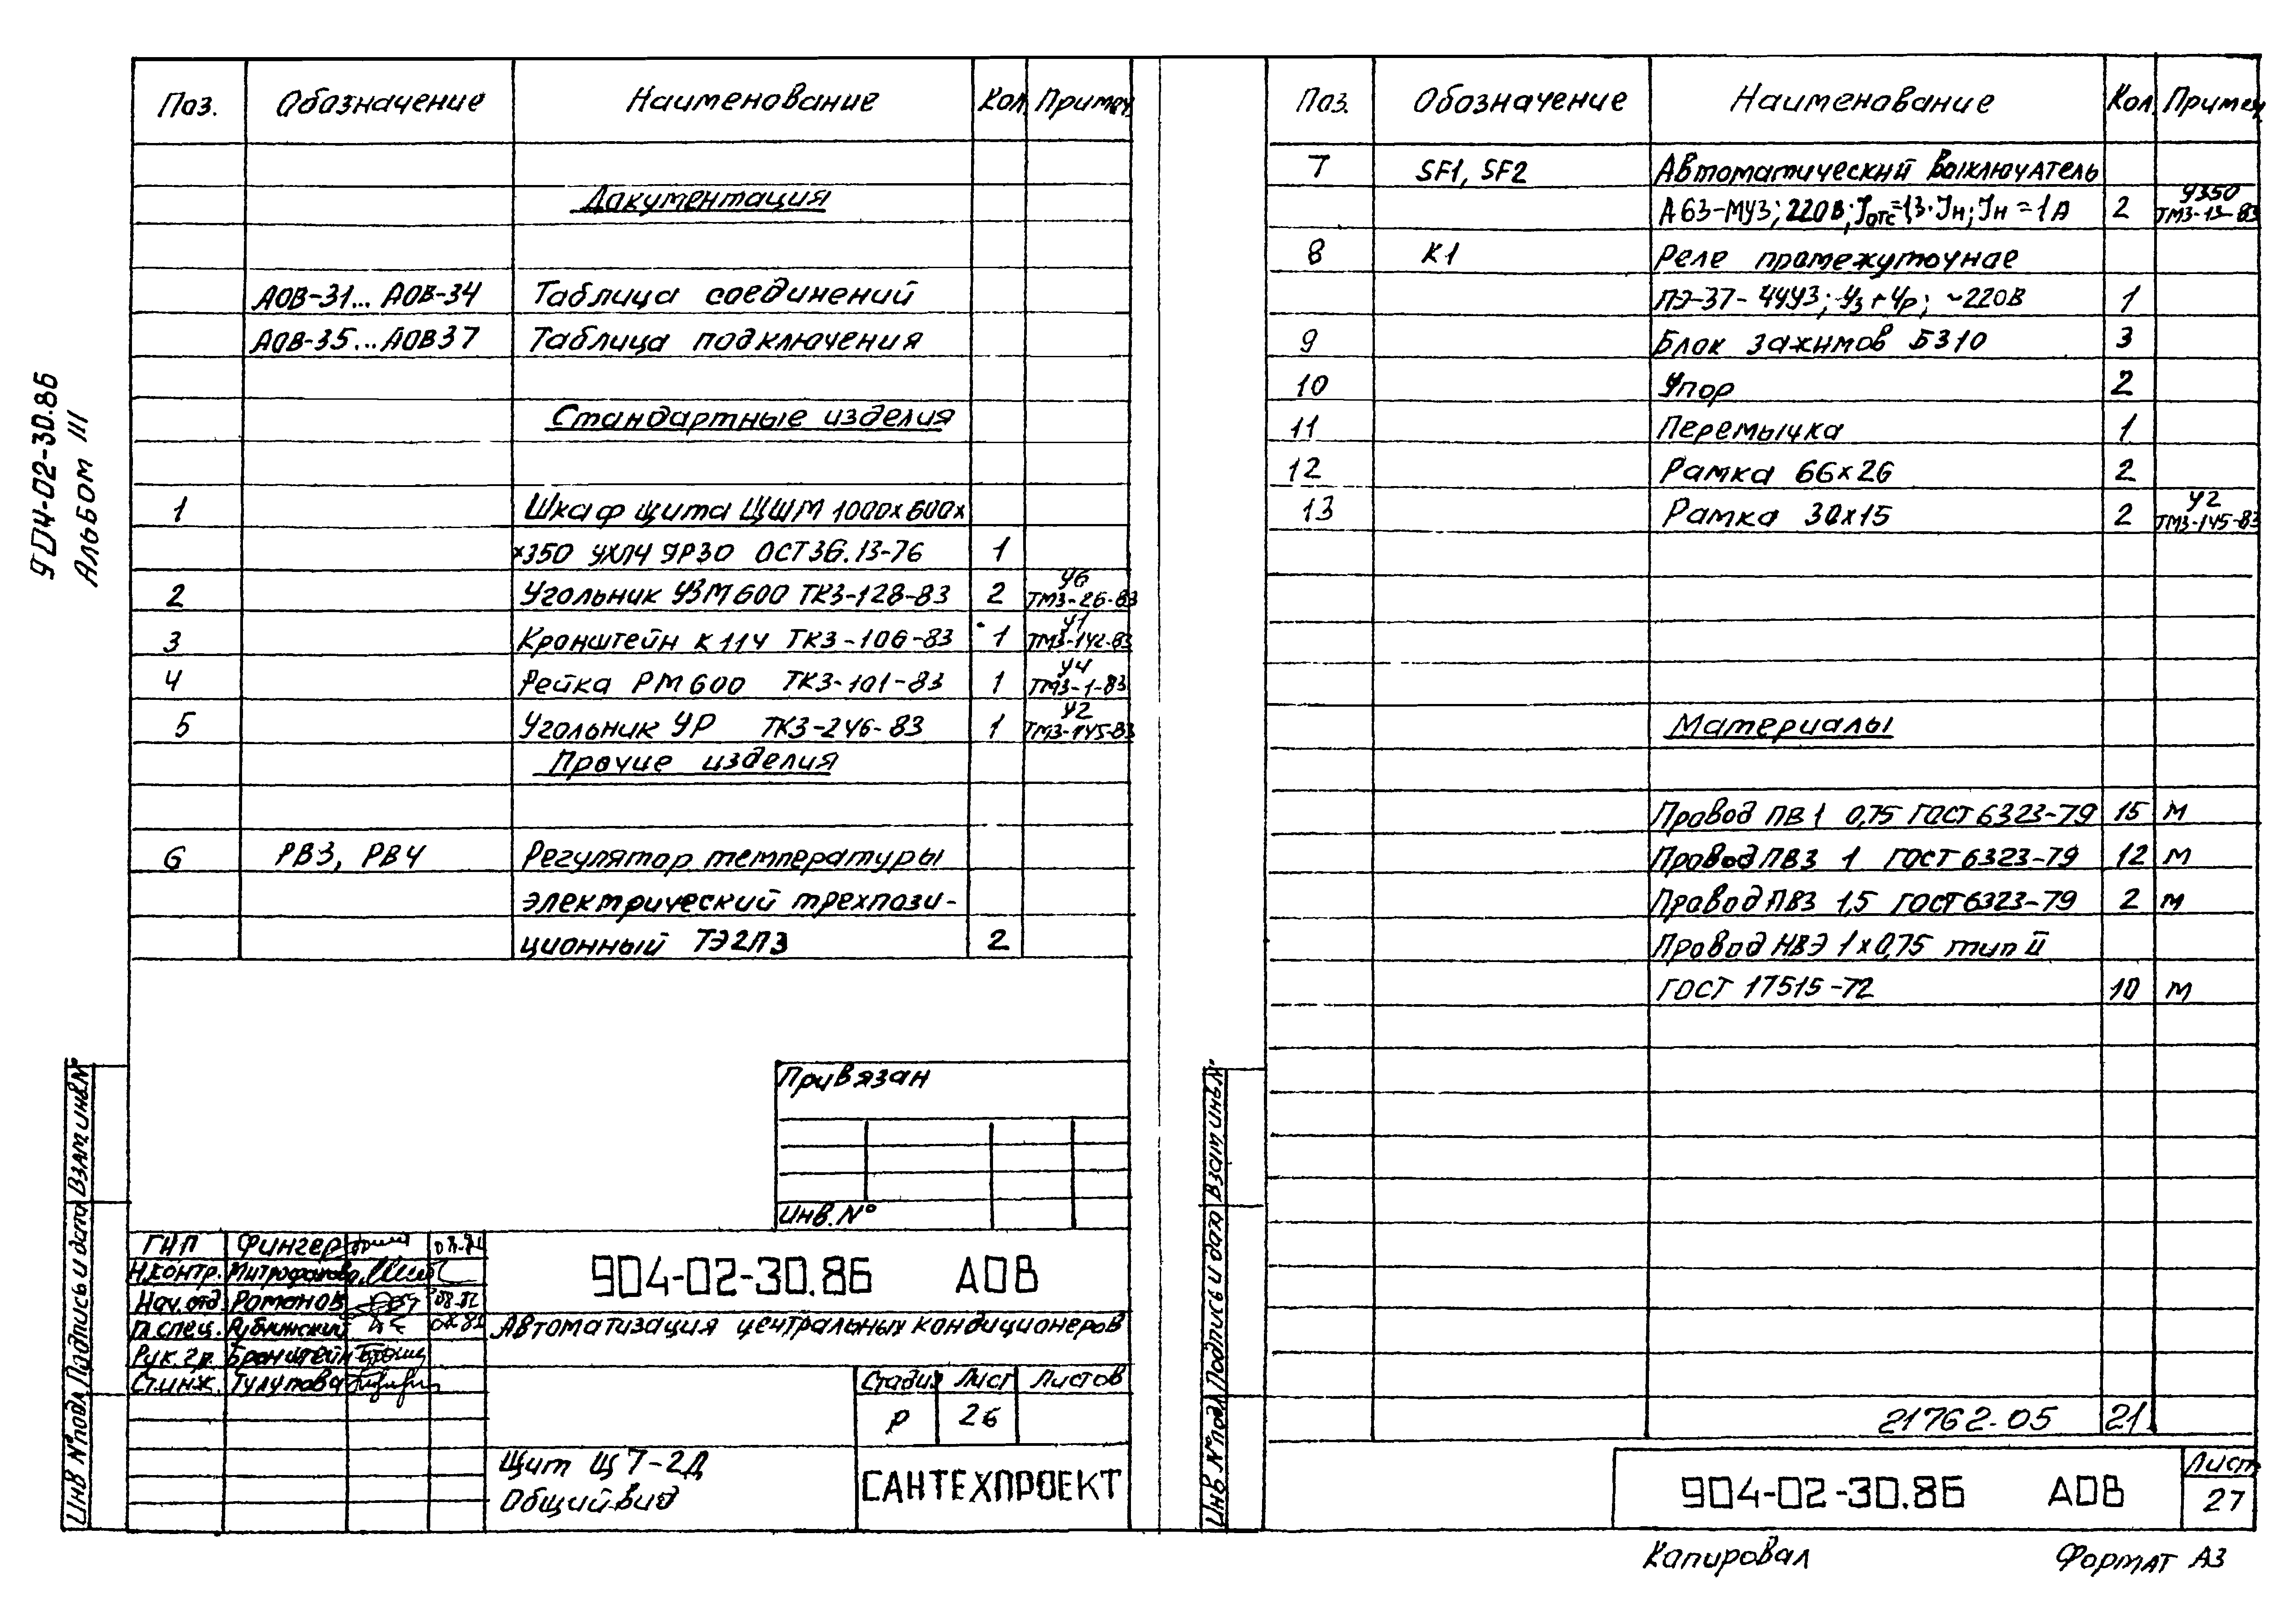 904-02-30.86
Альбом III
Поз. Обозначение Наименование Кол. Примеч.
Документация
АОВ-31... АОВ-34 Таблица соединений
АОВ-35...АОВ37 Таблица подключения
Стандартные изделия
1 Шкаф щита ЩШМ 1000х600х
х350 УХЛ4 УР30 ОСТ36.13-76 1
2 Угольник УЗМ600 ТК3-128-83 2 У6 ТМ3-26-83
3 Кронштейн К114 ТК3-106-83 1 У1 ТМ3-142-83
4 Рейка РМ600 ТК3-101-83 1 У4 ТМ3-1-83
5 Угольник УР ТК3-246-83 1 У2 ТМ3-145-83
Прочие изделия
6 РВ3, РВ4 Регулятор температуры
электрический трехпози-
ционный ТЭ2П3 2
Привязан
Инв. №
ГИП Фингер
Н.контр. Митрофанова
Нач.отд. Романов 08.82
Гл.спец. Рублинский
Рук.гр. Бронштейн
Ст.инж. Тулупова
904-02-30.86 АОВ
Автоматизация центральных кондиционеров
Стадия Лист Листов
Р 26
Щит Щ7-2Д
Общий вид
САНТЕХПРОЕКТ
Инв № подл. Подпись и дата Взам.инв.№
Поз. Обозначение Наименование Кол. Примеч
7 SF1, SF2 Автоматический выключатель
А63-МУ3; 220В; Iотс=1,3·Iн; Iн=1А 2 У350 ТМ3-13-83
8 К1 Реле промежуточное
ПЭ-37-44У3; 4з+4р; ~220В 1
9 Блок зажимов БЗ10 3
10 Упор 2
11 Перемычка 1
12 Рамка 66х26 2
13 Рамка 30х15 2 У2 ТМ3-145-83
Материалы
Провод ПВ1 0,75 ГОСТ 6323-79 15 м
Провод ПВ3 1 ГОСТ 6323-79 12 м
Провод ПВ3 1,5 ГОСТ 6323-79 2 м
Провод НВЭ 1х0,75 тип II
ГОСТ 17515-72 10 м
21762-05 21
Инв № подл. Подпись и дата Взам.инв.№
904-02-30.86 АОВ
Лист
27
Копировал Формат А3